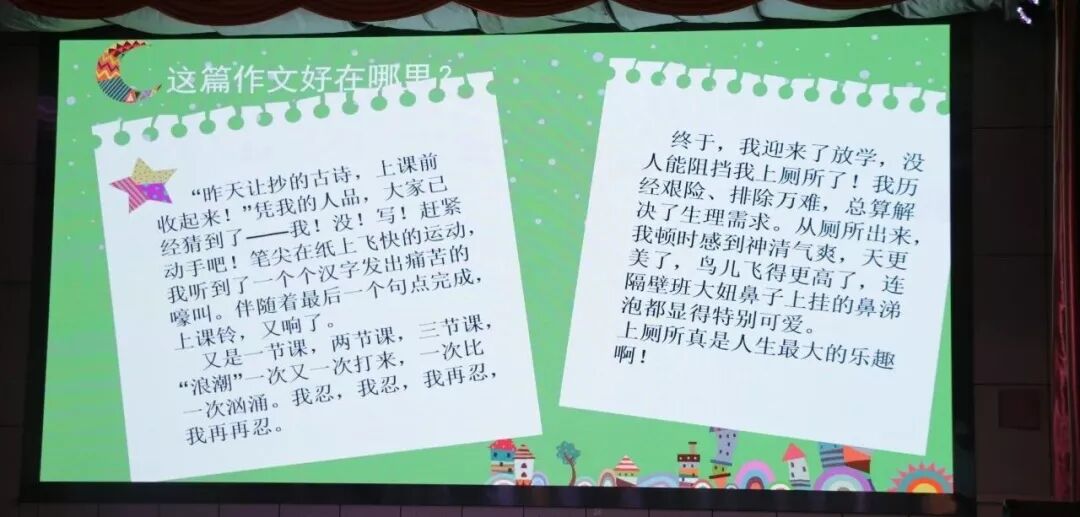 这篇作文好在哪里？
“昨天让抄的古诗，上课前
收起来！”凭我的人品，大家已
经猜到了——我！没！写！赶紧
动手吧！笔尖在纸上飞快的运动，
我听到了一个个汉字发出痛苦的
嚎叫。伴随着最后一个句点完成，
上课铃，又响了。
又是一节课，两节课，三节课，
“浪潮”一次又一次打来，一次比
一次汹涌。我忍，我忍，我再忍，
我再再忍。
终于，我迎来了放学，没
人能阻挡我上厕所了！我历
经艰险、排除万难，总算解
决了生理需求。从厕所出来，
我顿时感到神清气爽，天更
美了，鸟儿飞得更高了，连
隔壁班大妞鼻子上挂的鼻涕
泡都显得特别可爱。
上厕所真是人生最大的乐趣
啊！